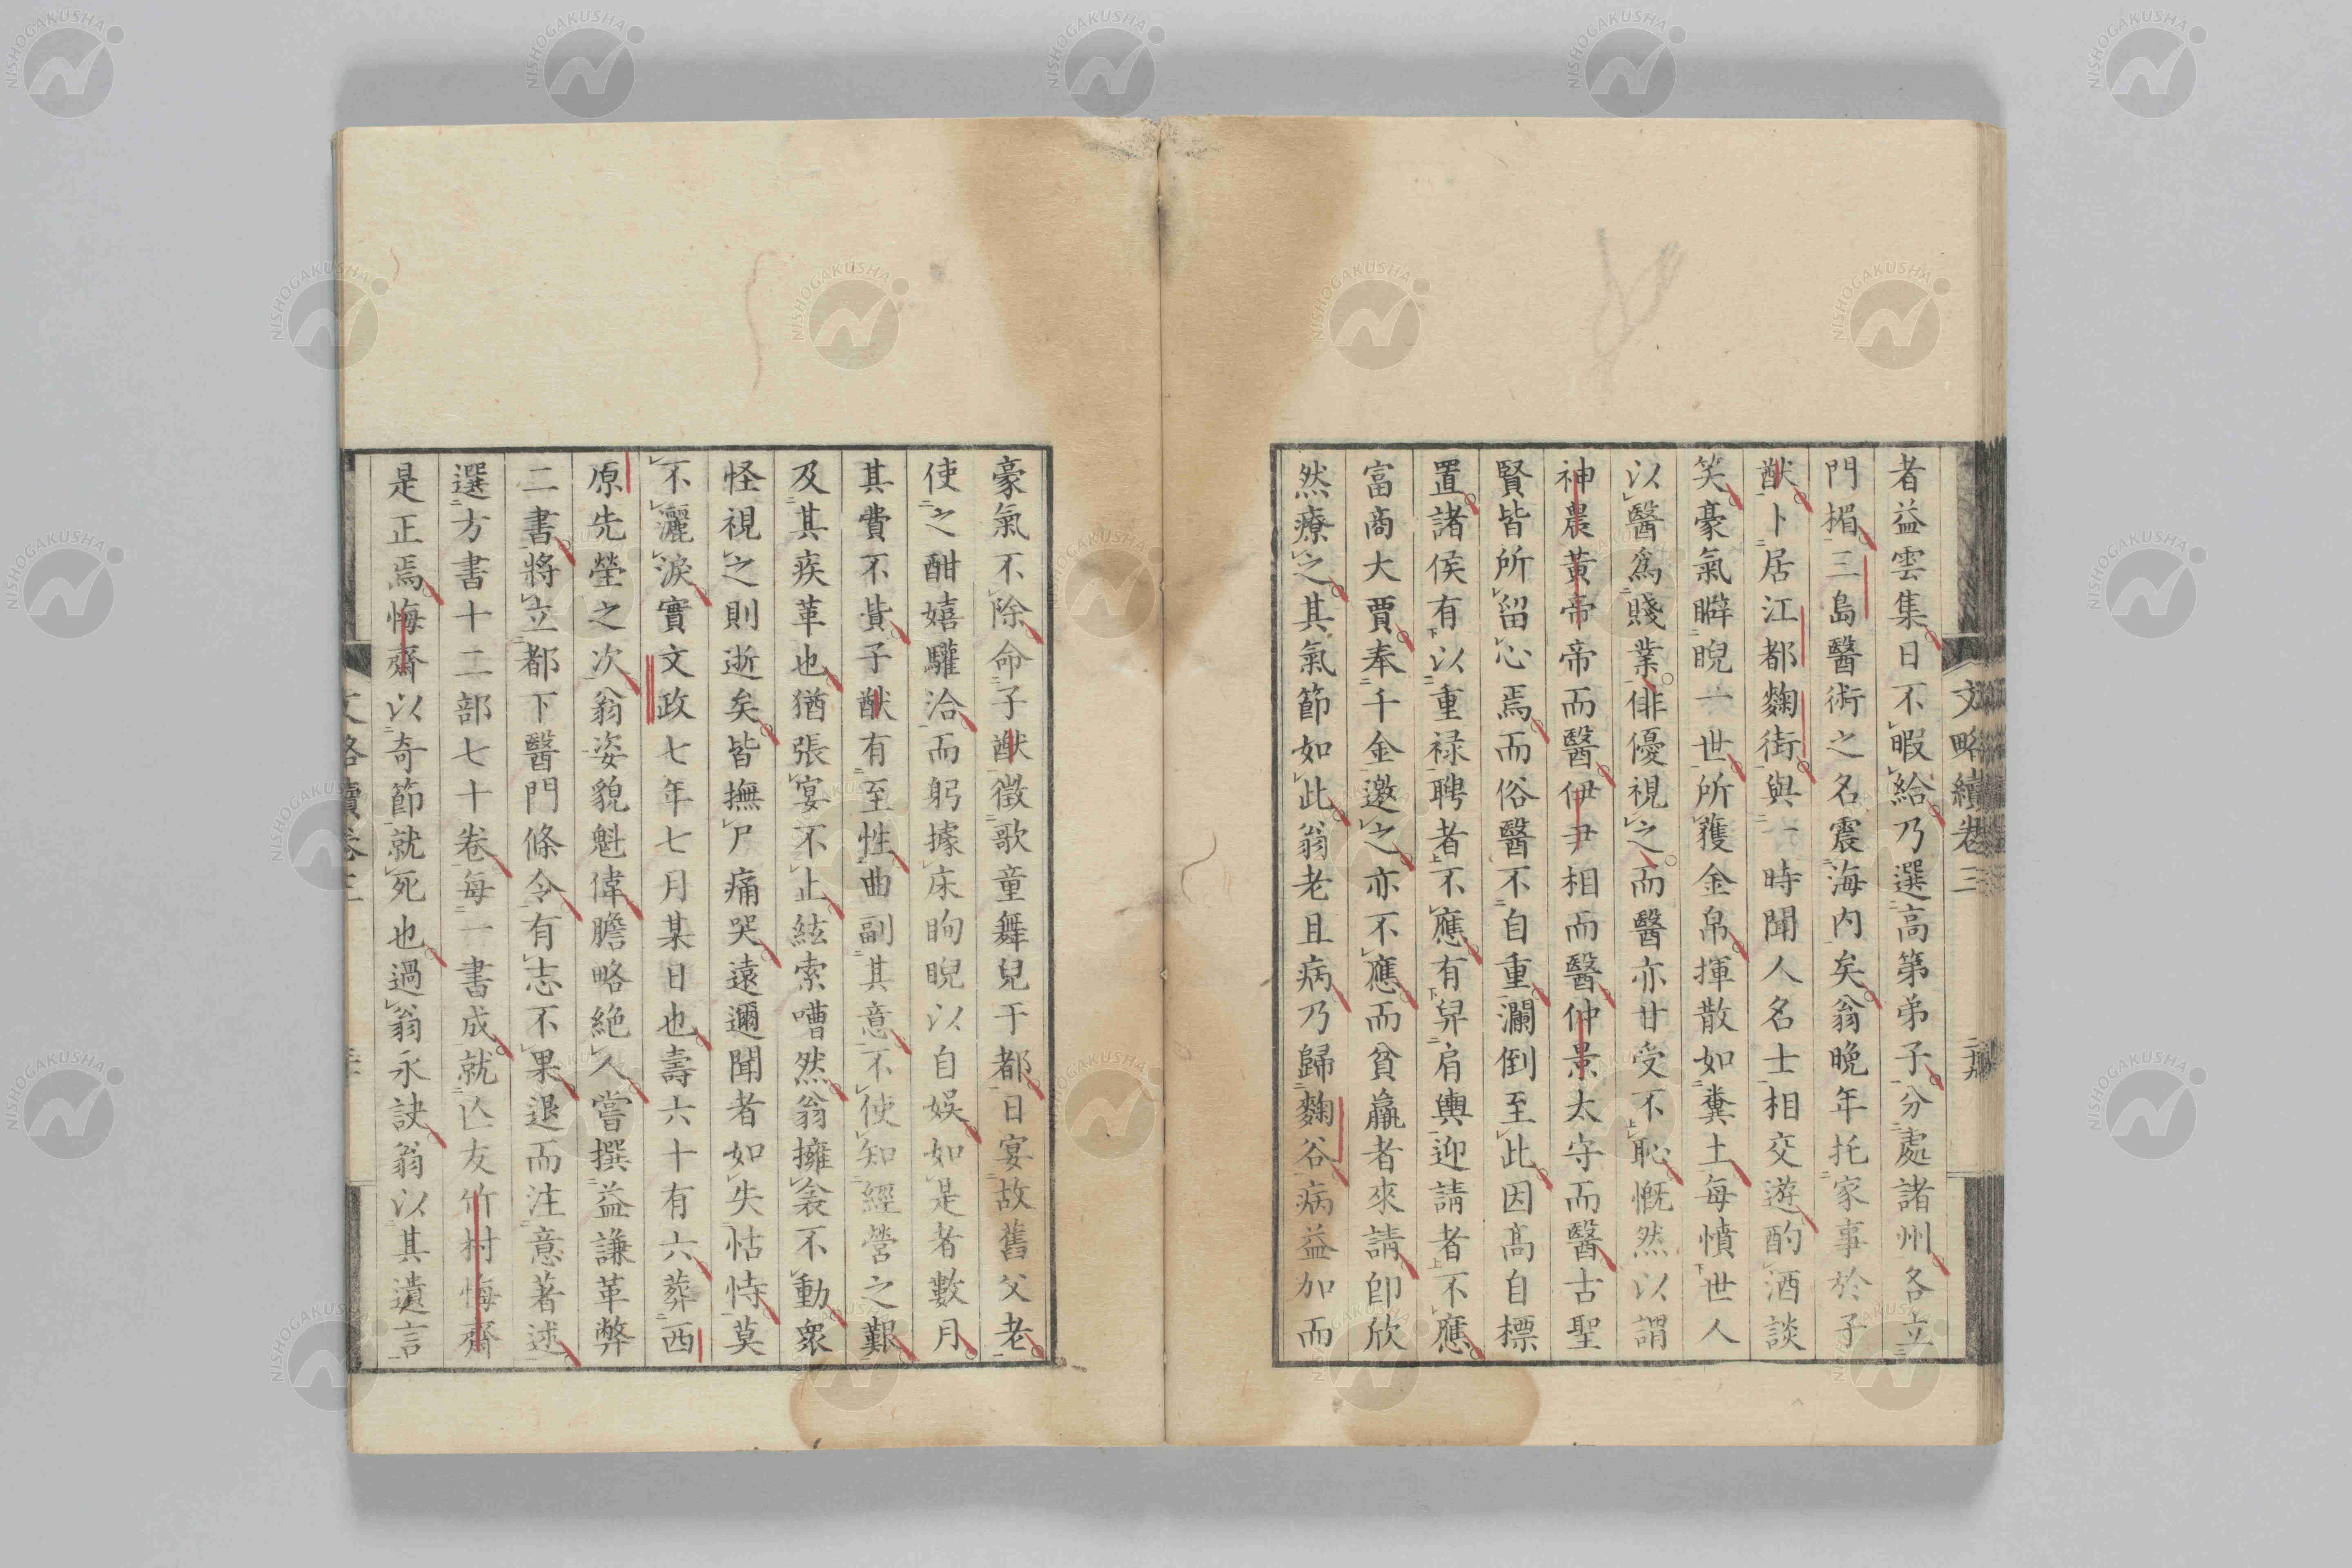 文略續卷三
者益雲集日不暇給乃選高第弟子分處諸州各立
門楣三島醫術之名震海內矣翁晚年托家事於子
猷卜居江都麴街與一時聞人名士相交遊酌酒談
笑豪氣睥睨一世所獲金帛揮散如糞土每憤世人
以醫爲賤業俳優視之而醫亦甘受不恥慨然以謂
神農黃帝帝而醫伊尹相而醫仲景太守而醫古聖
賢皆所留心焉而俗醫不自重瀾倒至此因高自標
置諸侯有以重祿聘者不應有舁肩輿迎請者不應
富商大賈奉千金邀之亦不應而貧羸者來請卽欣
然療之其氣節如此翁老且病乃歸麴谷病益加而
豪氣不除命子猷徵歌童舞兒于都日宴故舊父老
使之酣嬉驩洽而躬據床眴睨以自娛如是者數月
其費不貲子猷有至性曲副其意不使知經營之艱
及其疾革也猶張宴不止絃索嘈然翁擁衾不動衆
怪視之則逝矣皆撫尸痛哭遠邇聞者如失怙恃莫
不灑淚實文政七年七月某日也壽六十有六葬西
原先塋之次翁姿貌魁偉膽略絕人嘗撰益謙革弊
二書將立都下醫門條令有志不果退而注意著述
選方書十二部七十卷每一書成就亾友竹村悔齋
是正焉悔齋以奇節就死也過翁永訣翁以其遺言
NISHOGAKUSHA